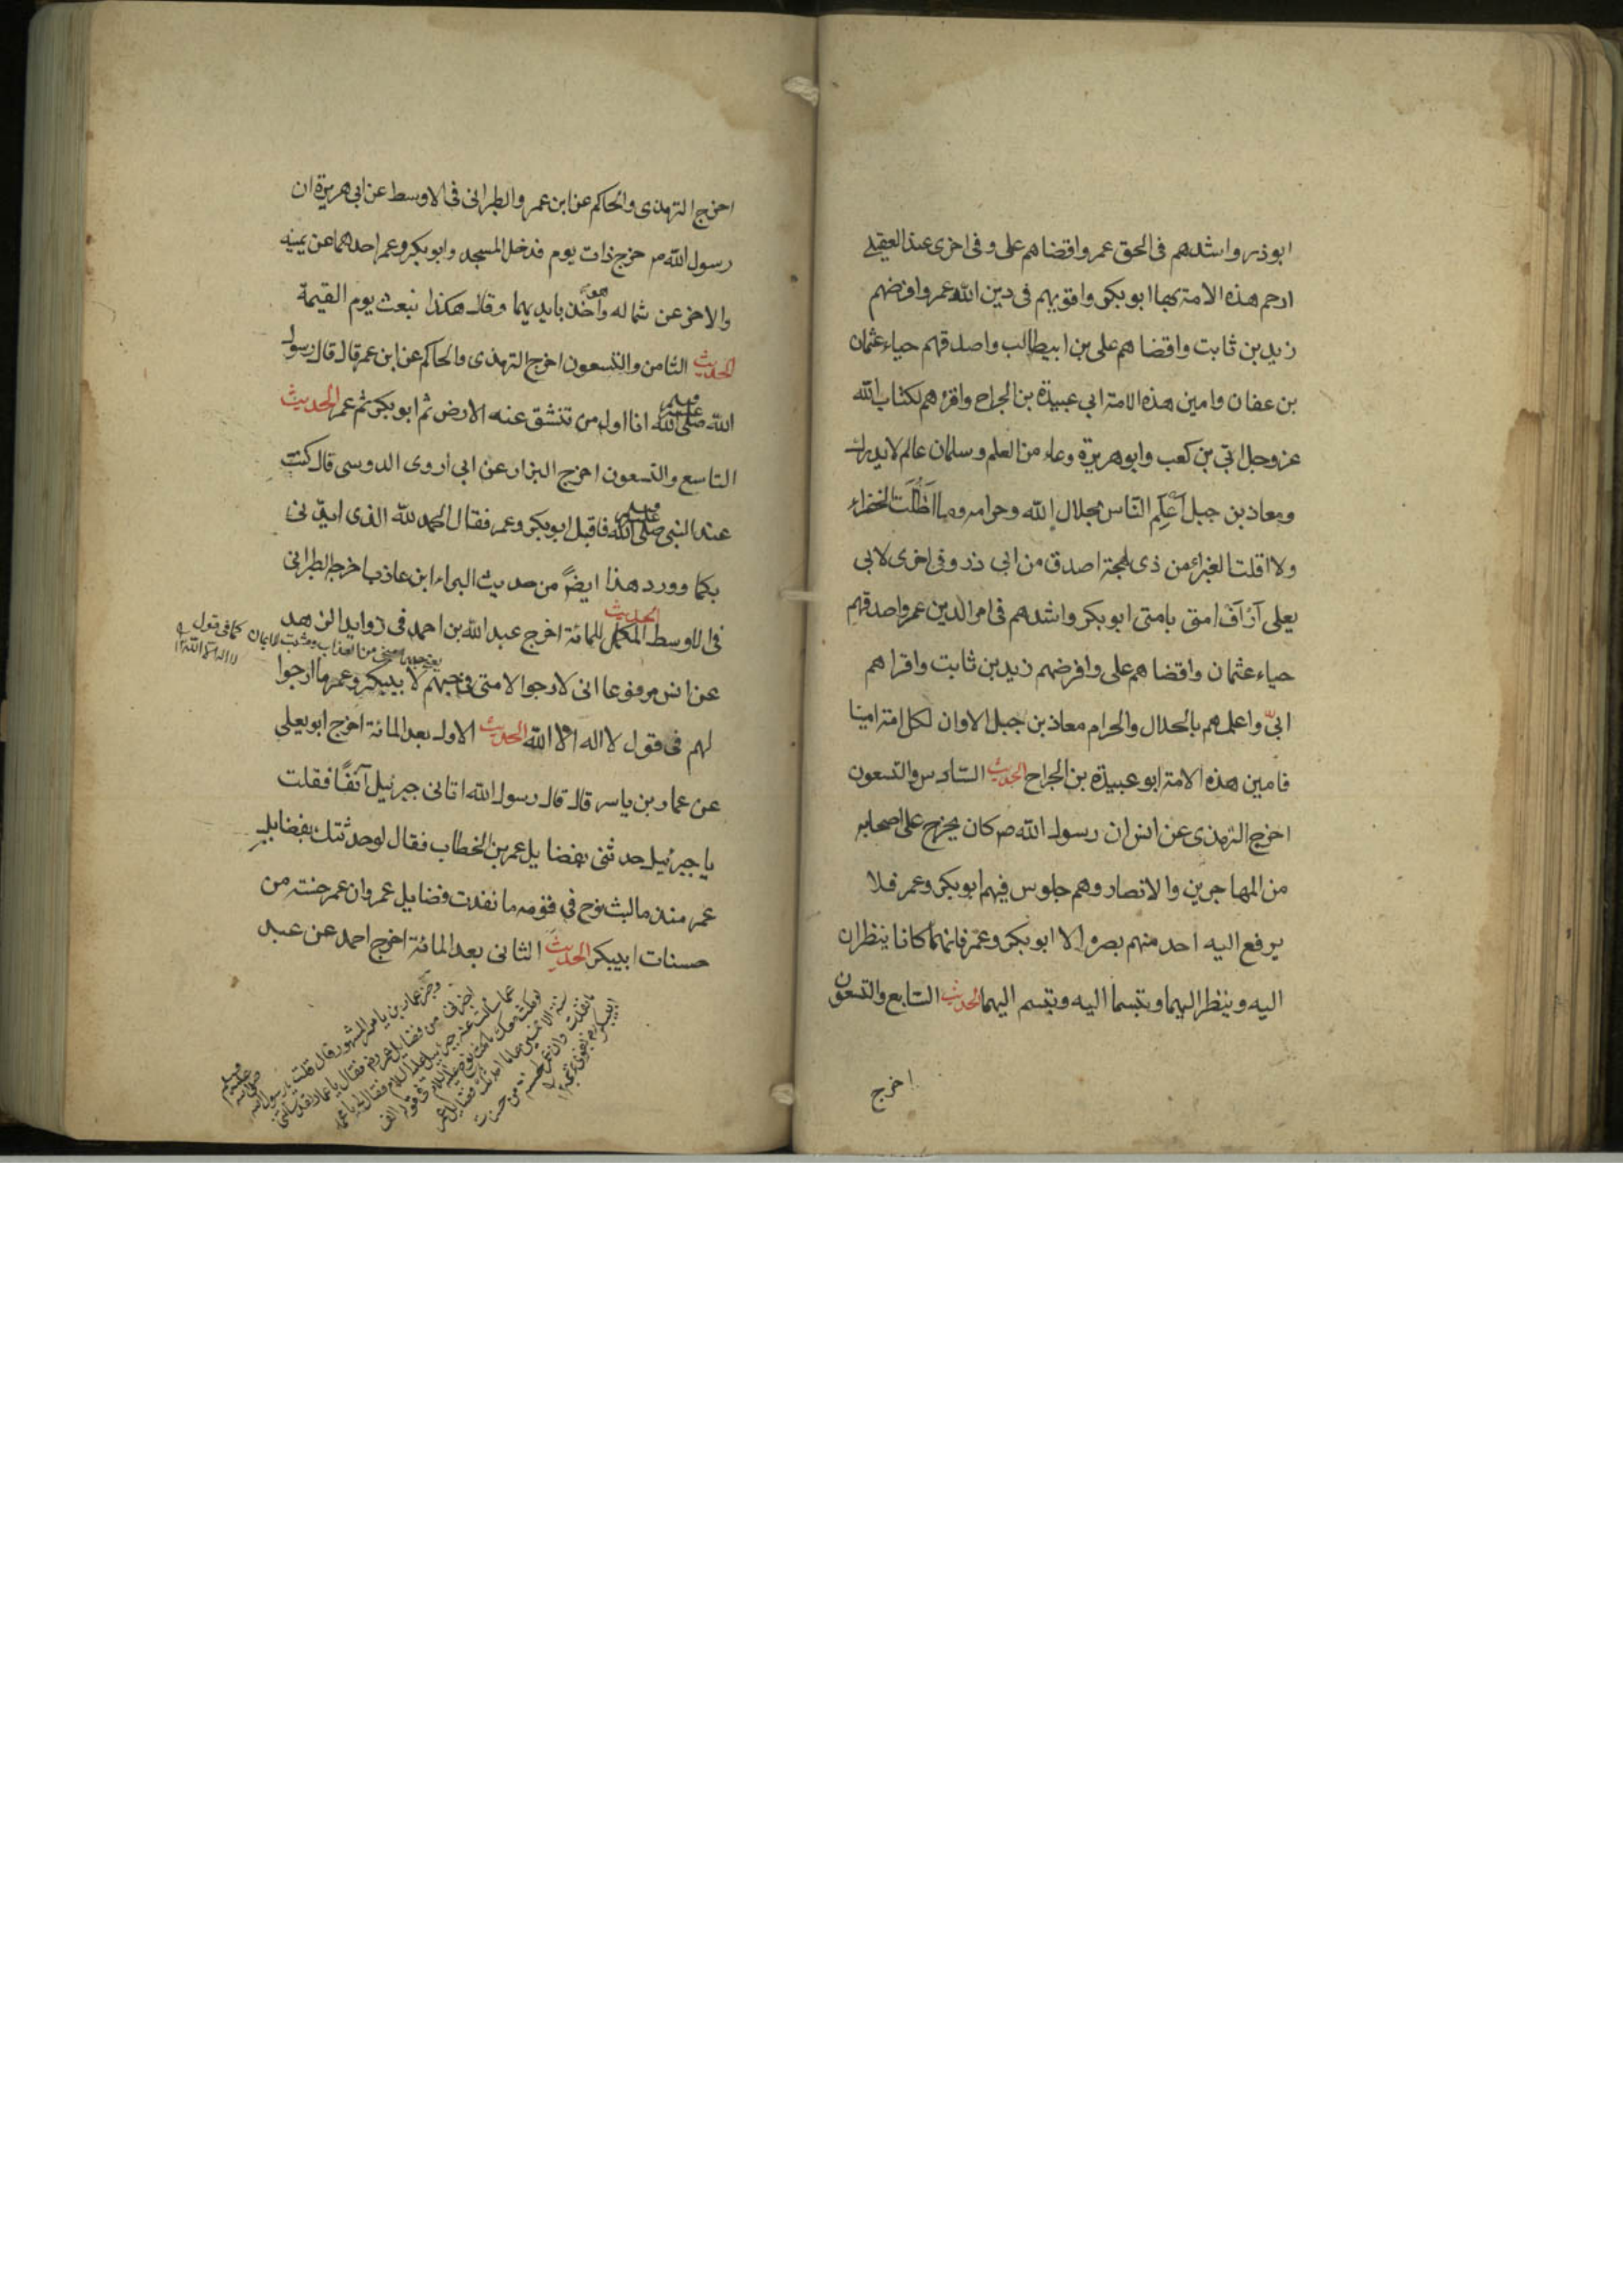 ابوذر واشدهم فى الحق عمر واقضاهم على وفى اخرى عند العقيلى
ارحم هذه الامة بها ابو بكر واقويهم فى دين الله عمر وافرضهم
زيد بن ثابت واقضاهم على بن ابيطالب واصدقهم حياء عثمان
بن عفان وامين هذه الامة ابى عبيدة بن الجراح واقرءهم لكتاب الله
عز وجل ابّي بن كعب وابو هريرة وعاء من العلم وسلمان عالم لا يدرك
ومعاذ بن جبل اعلم الناس بحلال الله وحرامه وما اظلت الخضراء
ولا اقلت الغبراء من ذى لهجة اصدق من ابى ذر وفى اخرى لابى
يعلى ارأف امتى بامتى ابو بكر واشدهم فى امر الدين عمر واصدقهم
حياء عثمان واقضاهم على وافرضهم زيد بن ثابت واقراهم
ابيّ واعلمهم بالحلال والحرام معاذ بن جبل الا وان لكل امة امينا
فامين هذه الامة ابو عبيدة بن الجراح الحديث السّادس والتسعون
اخرج الترمذى عن انس ان رسول الله ص كان يخرج على اصحابه
من المهاجرين والانصار وهم جلوس فيهم ابو بكر وعمر فلا
يرفع اليه احد منهم بصره الا ابو بكر وعمر فانهما كانا ينظران
اليه وينظر اليهما ويتبسما اليه ويتبسم اليهما الحديث السّابع والتسعون
اخرج
اخرج الترمذى والحاكم عن ابن عمر والطبرانى فى الاوسط عن ابى هريرة ان
رسول الله ص خرج ذات يوم فدخل المسجد وابو بكر وعمر احدهما عن يمينه
والاخر عن شماله وهو آخذ بايديهما وقال هكذا نبعث يوم القيمة
الحديث الثامن والتسعون اخرج الترمذى والحاكم عن ابن عمر قال قال رسول
الله صلى الله عليه وسلم انا اول من تنشق عنه الارض ثم ابو بكر ثم عمر الحديث
التاسع والتسعون اخرج البزار عن ابى اروى الدوسى قال كنت
عند النبى صلى الله عليه وسلم فاقبل ابو بكر وعمر فقال الحمد لله الذى ايدنى
بكما وورد هذا ايضً من حديث البراء ابن عازب اخرجه الطبرانى
فى الاوسط الحديث المكمل للمائة اخرج عبد الله بن احمد فى زوايد الزهد
عن انس مرفوعا انى لارجوا لامتى فى حبهم لابيبكر وعمر ما ارجوا
كما فى قول لا اله الا الله
لهم فى قول لا اله الا الله الحديث الاول بعد المائة اخرج ابو يعلى
عن عمار بن ياسر قال قال رسول الله اتانى جبرئيل آنفًا فقلت
يا جبرئيل حدثنى بفضايل عمر بن الخطاب فقال لو حدثتك بفضايل
عمر منذ ما لبث نوح فى قومه ما نفدت فضايل عمر وان عمر حسنة من
حسنات ابيبكر الحديث الثانى بعد المائة اخرج احمد عن عبد
عمار بن ياسر المشهور قال قلت يا رسول الله صلى الله عليه وسلم
اخبرنى من فضايل عمر فقال يا عمار لقد سألتنى
عما سألت عنه جبرئيل عليه السلام فقال لى يا محمد